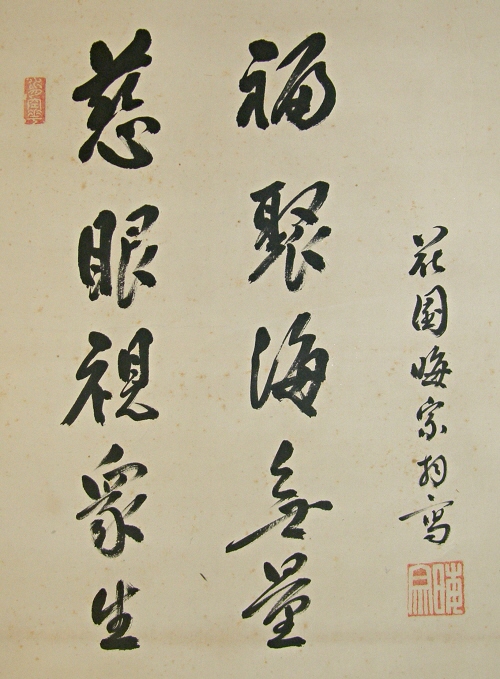 慈眼視衆生
福聚海無量
花園晦宗拝寫